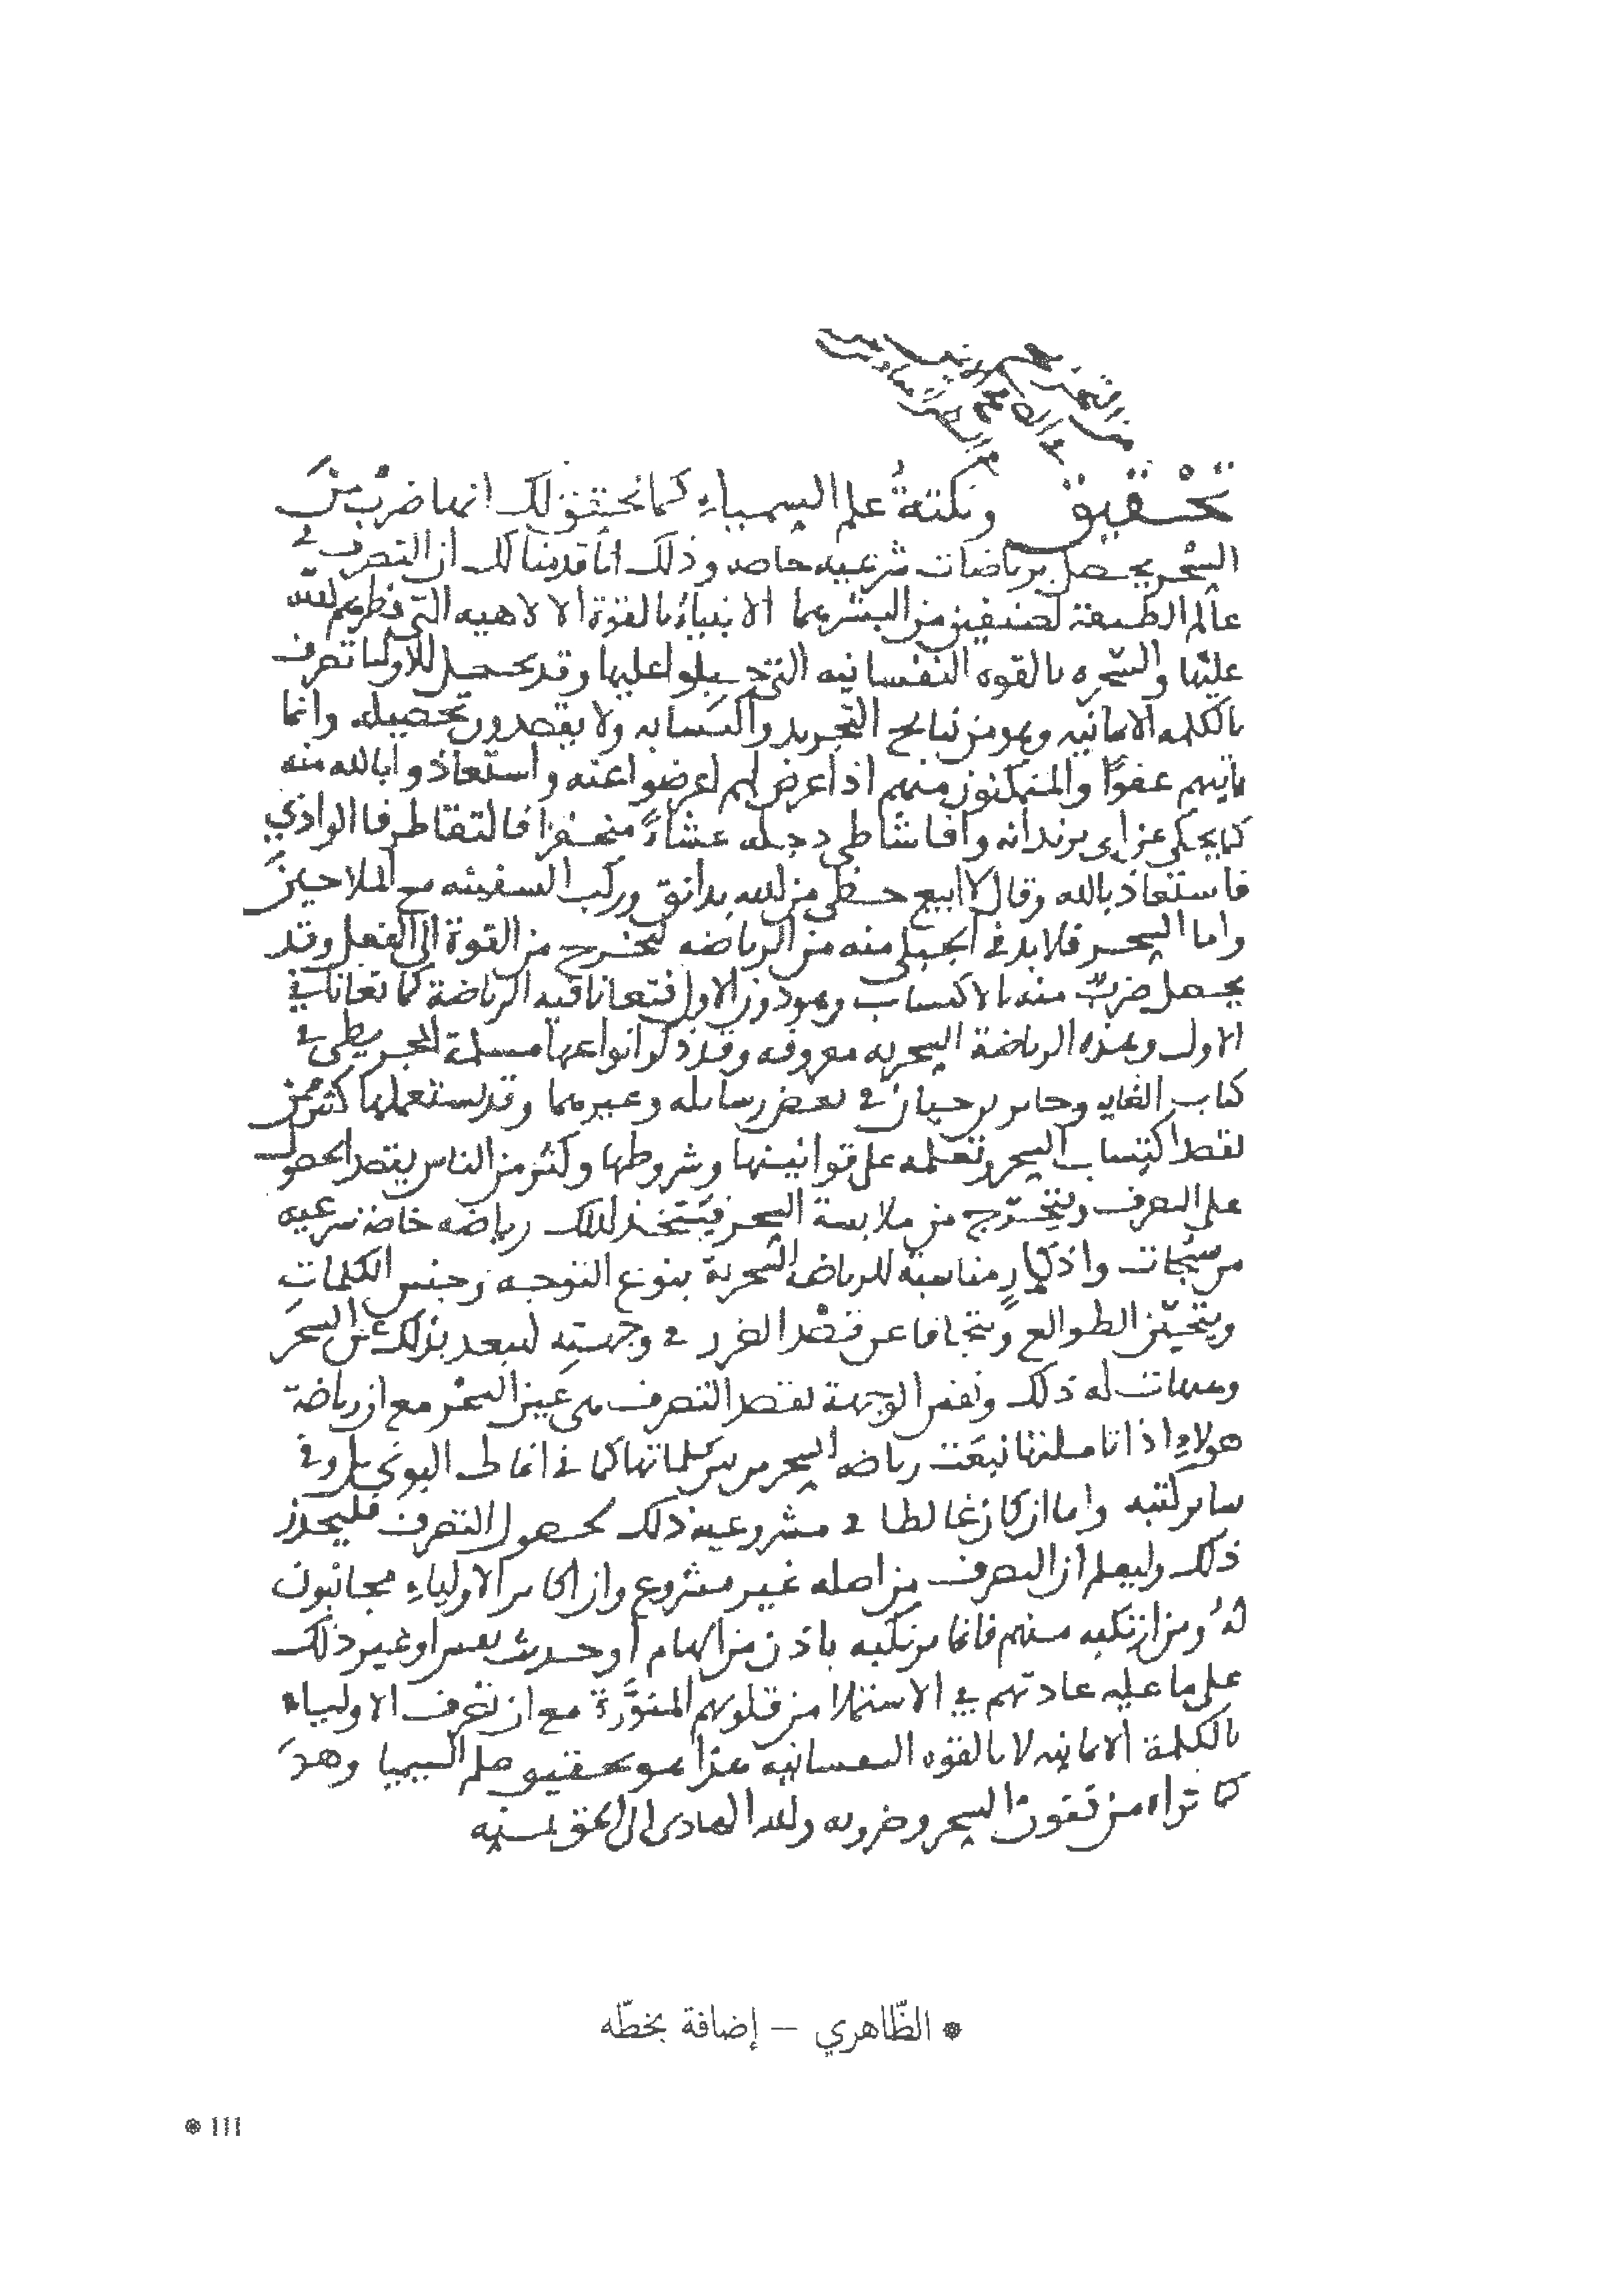 تحقيق ونكتة علم السيمياء كما نحقق لك انها ضرب من
السحر يحصل برياضات شرعيه خاصه وذلك انا قدمنا لك ان التصرف في
عالم الطبيعة لصنفين من البشر هما الانبياء بالقوة الالاهيه التي فطرهم الله
عليها والسحره بالقوه النفسانيه التي جبلوا عليها وقد يحصل للاوليا تصرف
بالكلمه الايمانيه وهو من نتايج التجريد واكتسابه ولا يقصدون تحصيله وانما
ياتيهم عفوا والمتمكنون منهم اذا عرض لهم اعرضوا عنه واستعاذوا بالله منه
كما يحكى عن ابي يزيد انه وافا شاطي دجله عشاء متحفزا فالتقا طرفا الوادي
فاستعاذ بالله وقال لا ابيع حظي من الله بدانق وركب السفينه مع الملاحين
واما السحر فلا بد في الجبلي منه من الرياضه ليخرج من القوة الى الفعل وقد
يحصل ضرب منه بالاكتساب وهو دون الاول فتعانا فيه الرياضة كما تعانا في
الاول وهذه الرياضة السحريه معروفه وقد ذكر انواعها مسلمة المجريطي في
كتاب الغايه وجابر بن حيان في بعض رسايله وغيرهما وقد يستعملها كثير ممن
يقصد اكتساب السحر وتعلمه على قوانينها وشروطها وكثير من الناس يقصد الحصول
على التصرف ويتحرج من ملابسة السحر فيتخذ لذلك رياضه خاصة شرعيه
من سبحات واذكار مناسبة للرياضة السحرية بنوع التوجه وجنس الكلمات
ويتحين الطوالع ويتجافا عن قصد الضرر في وجهته ليبعد بذلك عن السحر
وهيهات له ذلك ونفس الوجهة بقصد التصرف هي عين السحر مع ان رياضة
هولاء اذا تاملتها نبعت رياضه السحر من بين كلماتها كما في انماط البوني بل وفي
ساير كتبه واما ان كان غالطا في مشروعية ذلك لحصول التصرف فليحذر
ذلك وليعلم ان التصرف من اصله غير مشروع وان اكابر الاولياء مجانبون
له ومن ارتكبه منهم فانما يرتكبه باذن من الهام او حديث نفس او غير ذلك
على ما عليه عادتهم في الاستملا من قلوبهم المنورة مع ان تصرف الاولياء
بالكلمة الايمانيه لا بالقوه النفسانيه هذا هو تحقيق علم السيميا وهو
كما تراه من فنون السحر وضروبه والله الهادي الى الحق بمنه
* الظّاهري – إضافة بخطّه
111 *